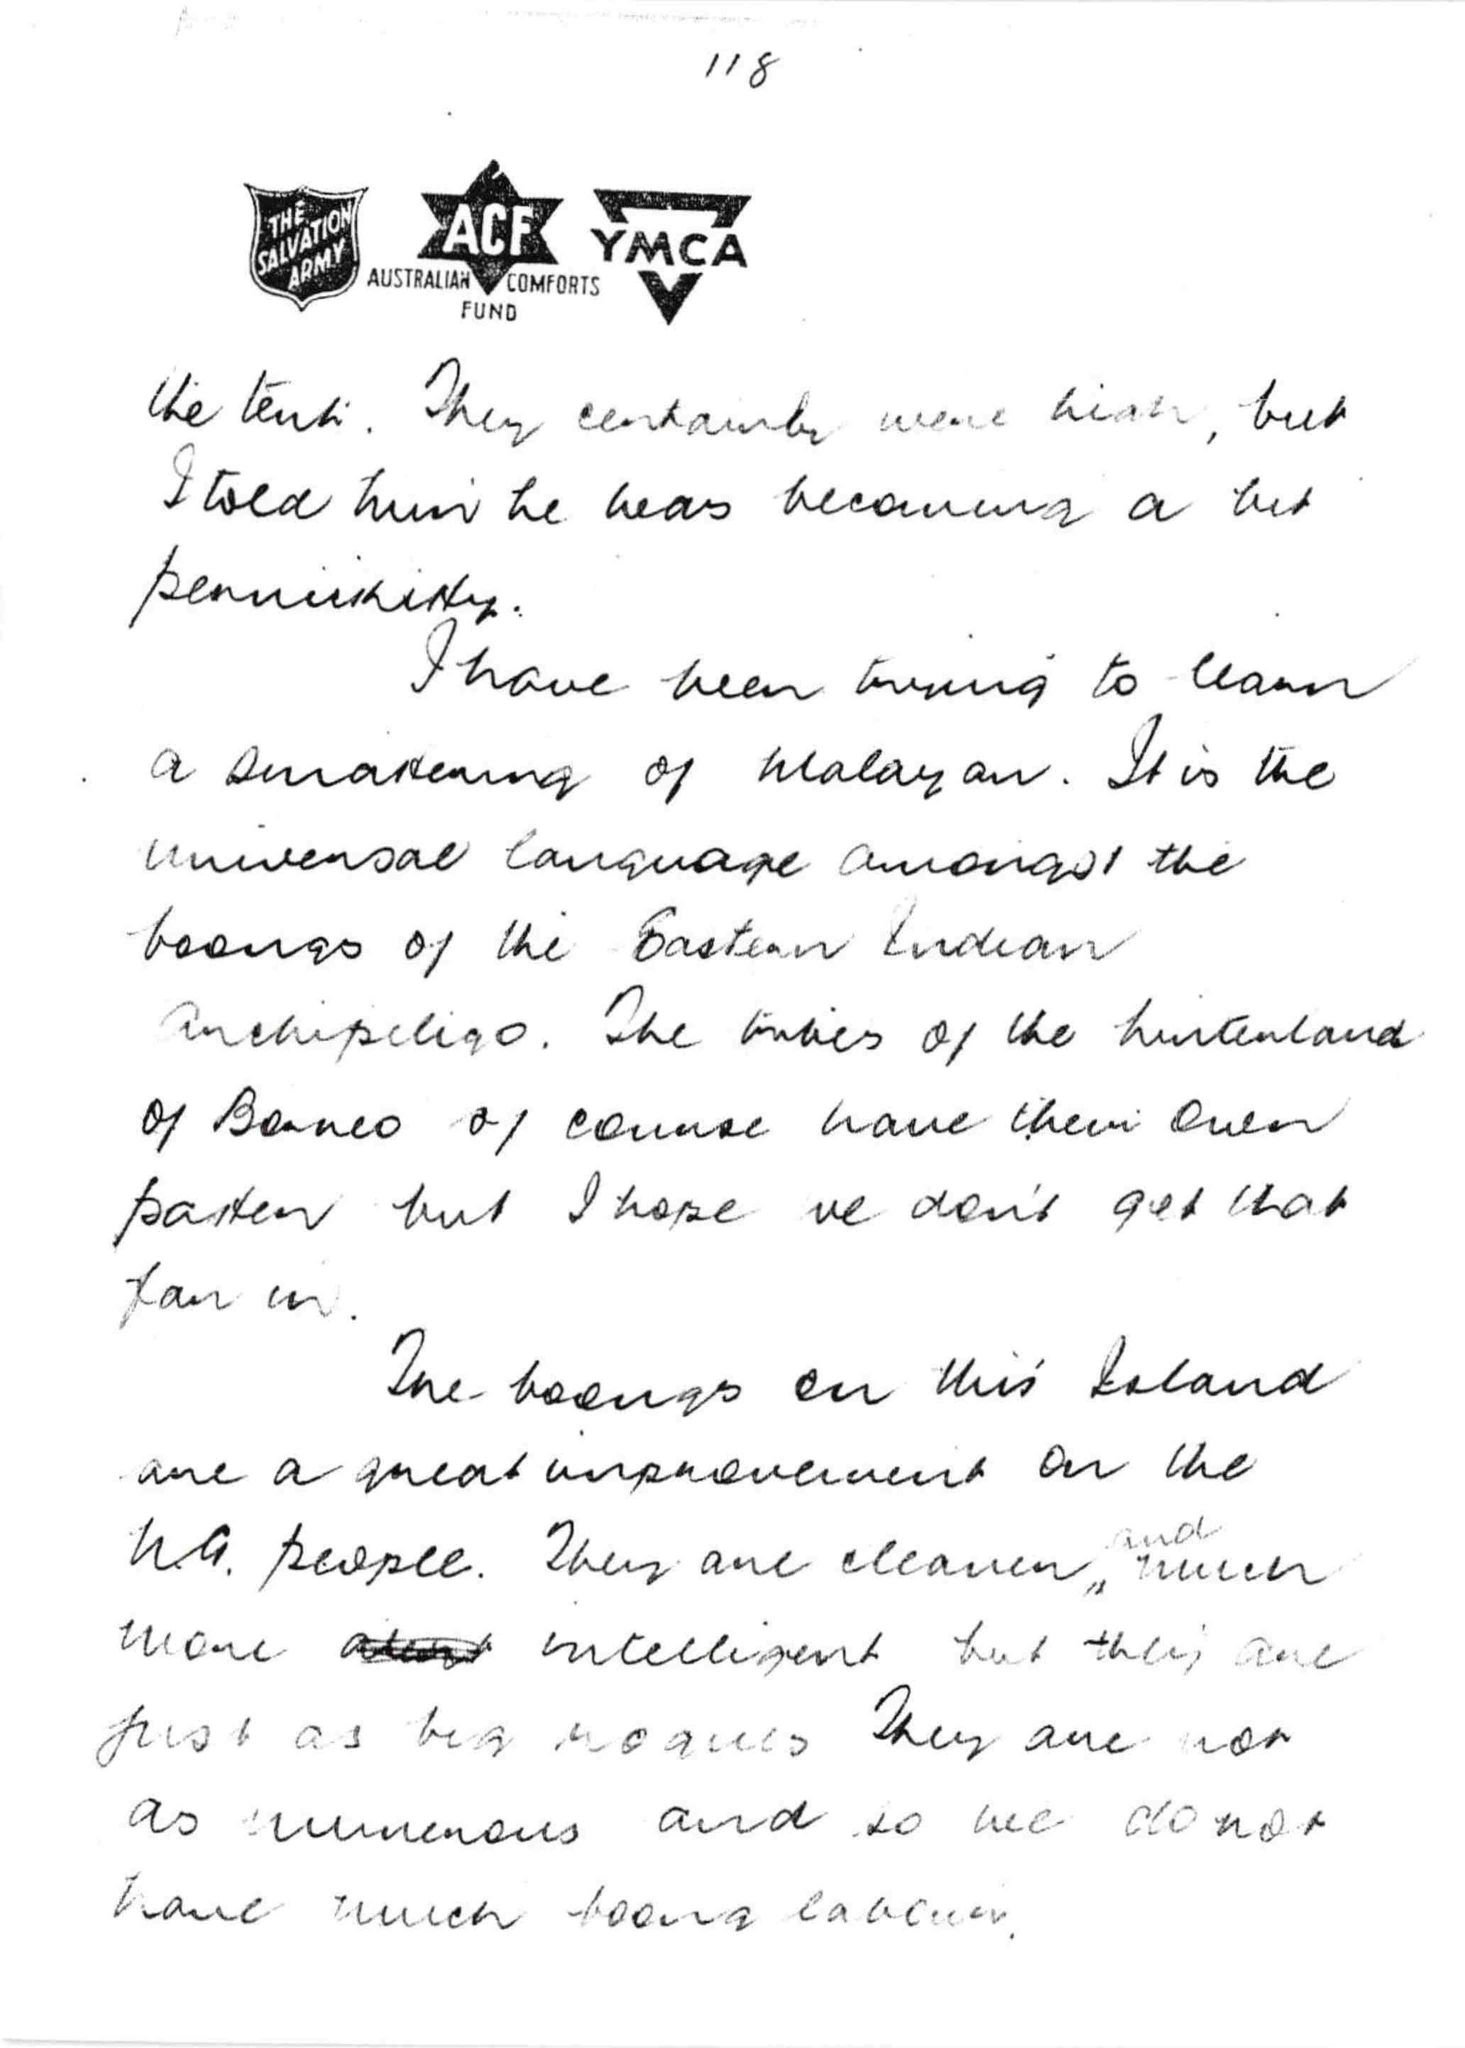 118
THE SALVATION ARMY
ACF
AUSTRALIAN COMFORTS
FUND
YMCA
the tent. They certainly were high, but
I told him he was becoming a bit
pernickitty.
I have been trying to learn
a smattering of Malayan. It is the
universal language amongst the
boongs of the Eastern Indian
Archipeligo. The tribes of the hinterland
of Borneo of course have their own
patter but I hope we don't get that
far in.
The boongs on this Island
are a great improvement on the
N.G. people. They are cleaner,, and much
more intelligent but they are
just as big rogues They are not
as numerous and so we do not
have much boong labour.